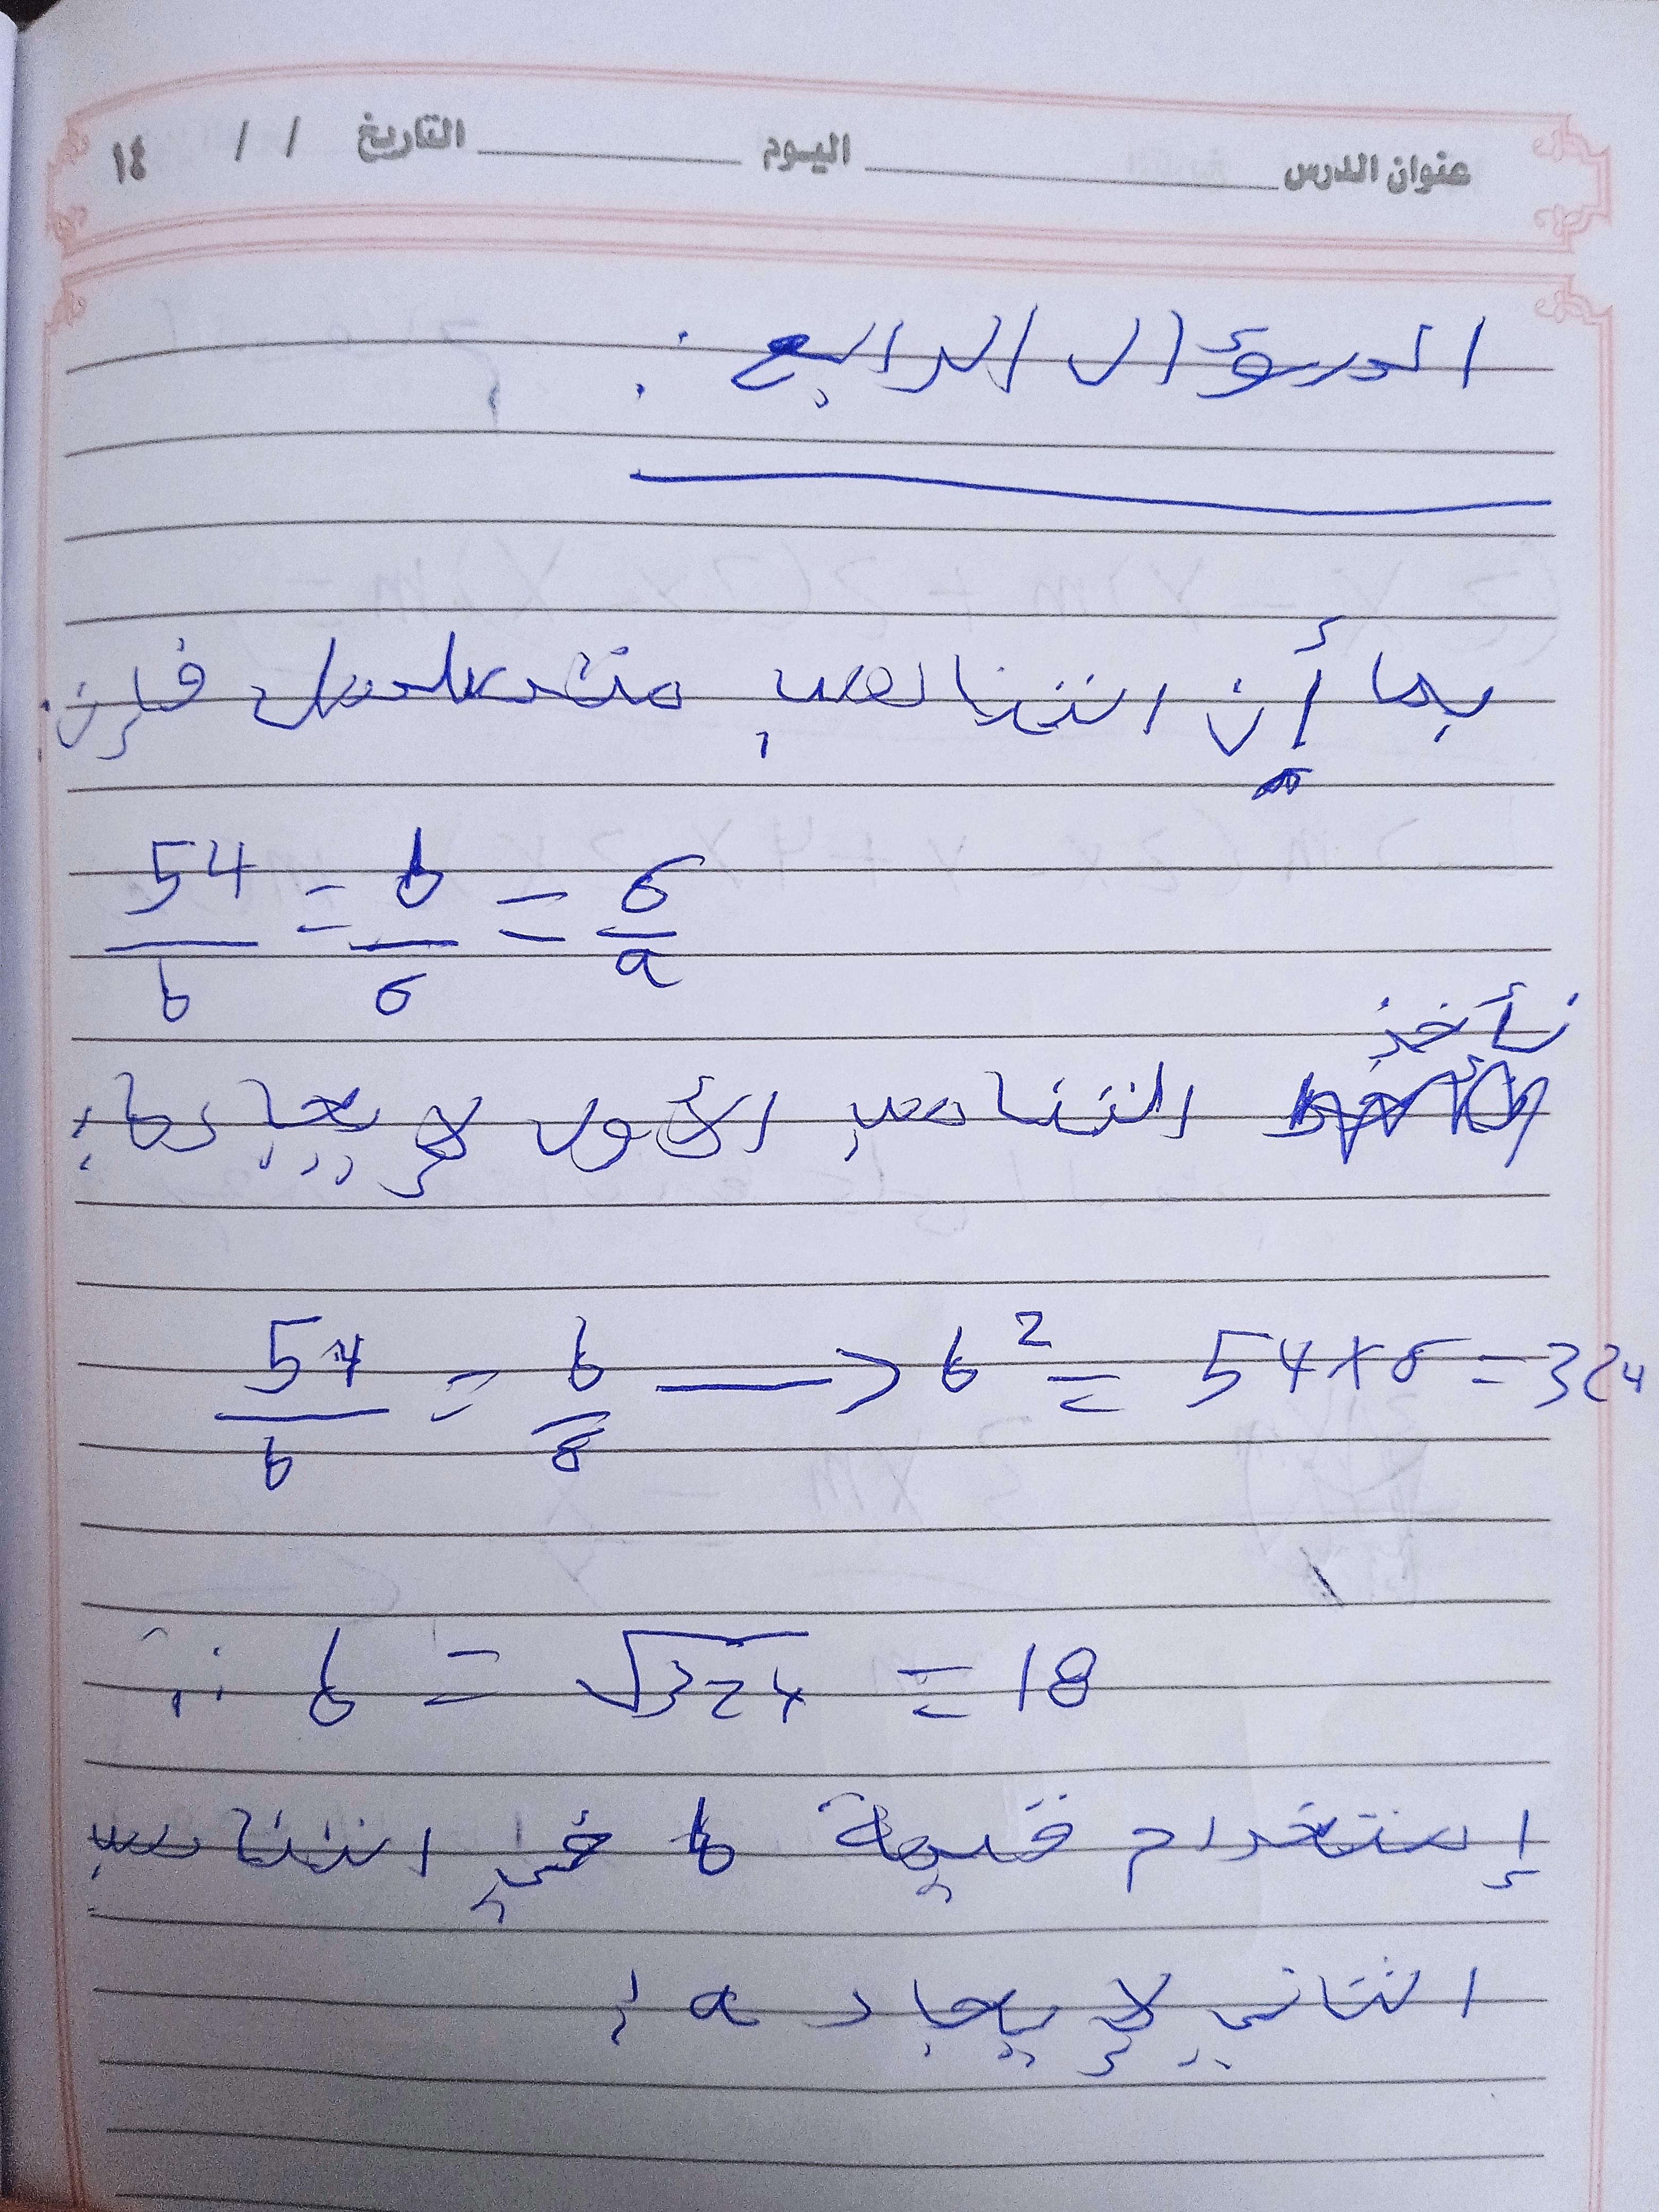 عنوان الدرس اليوم التاريخ / / ١٤
السؤال الرابع :
بما أن التناسب متسلسل فإن:
54/b = b/6 = 6/a
نأخذ
التناسب الأول لإيجاد b:
54/b = b/6 —> b² = 54×6 = 324
∴ b = √324 = 18
إستخدام قيمة b في التناسب
الثاني لإيجاد a: